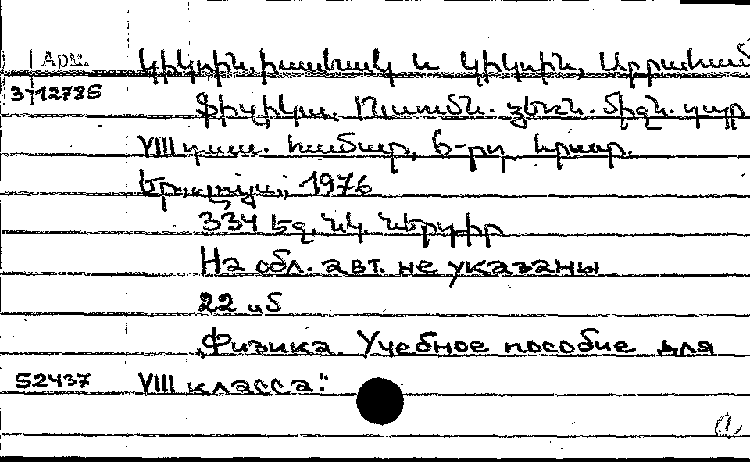 Арм.
Կիկոին, Իսահակ և Կիկոին, Աբրահամ
3-12785
Ֆիզիկա. Ուսումն. ձեռն. միջն. դպր.
VIII դաս. համար, 6-րդ հրատ.
Եր., Լույս, 1976
334 էջ. նկ. ներդիր
На обл. авт. не указаны
22 к5
„Физика. Учебное пособие для
52437
VIII класса."